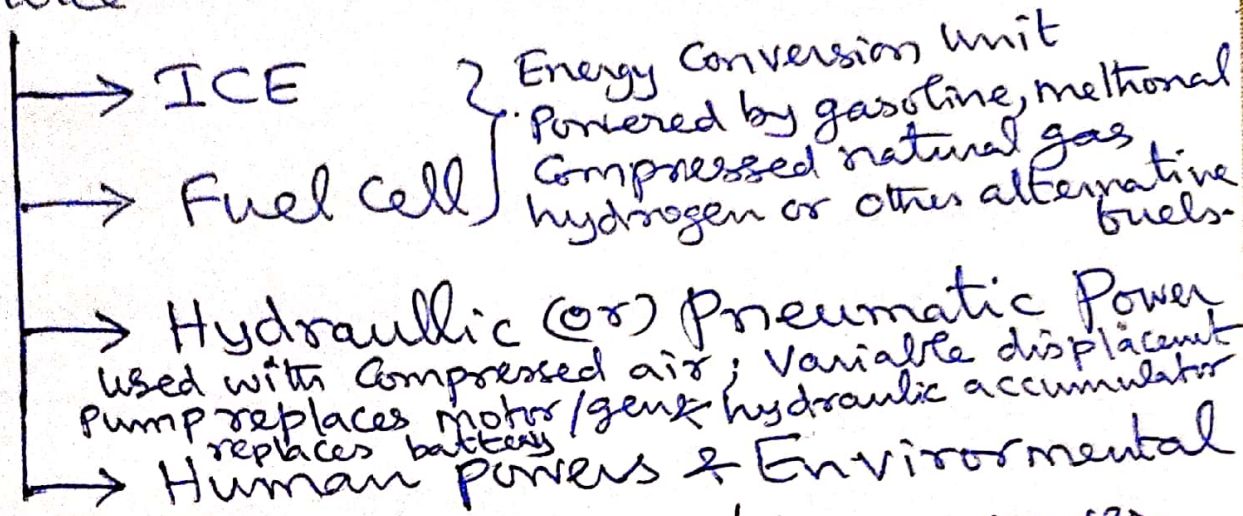 ICE
Energy Conversion Unit
Powered by gasoline, methonal
Compressed natural gas
Fuel Cell
hydrogen or other alternative
fuels.
Hydraullic (or) Pneumatic Power
used with Compressed air; Variable displacement
Pump replaces motor/gen & hydraulic accumulator
replaces battery
Human powers & Envirormental